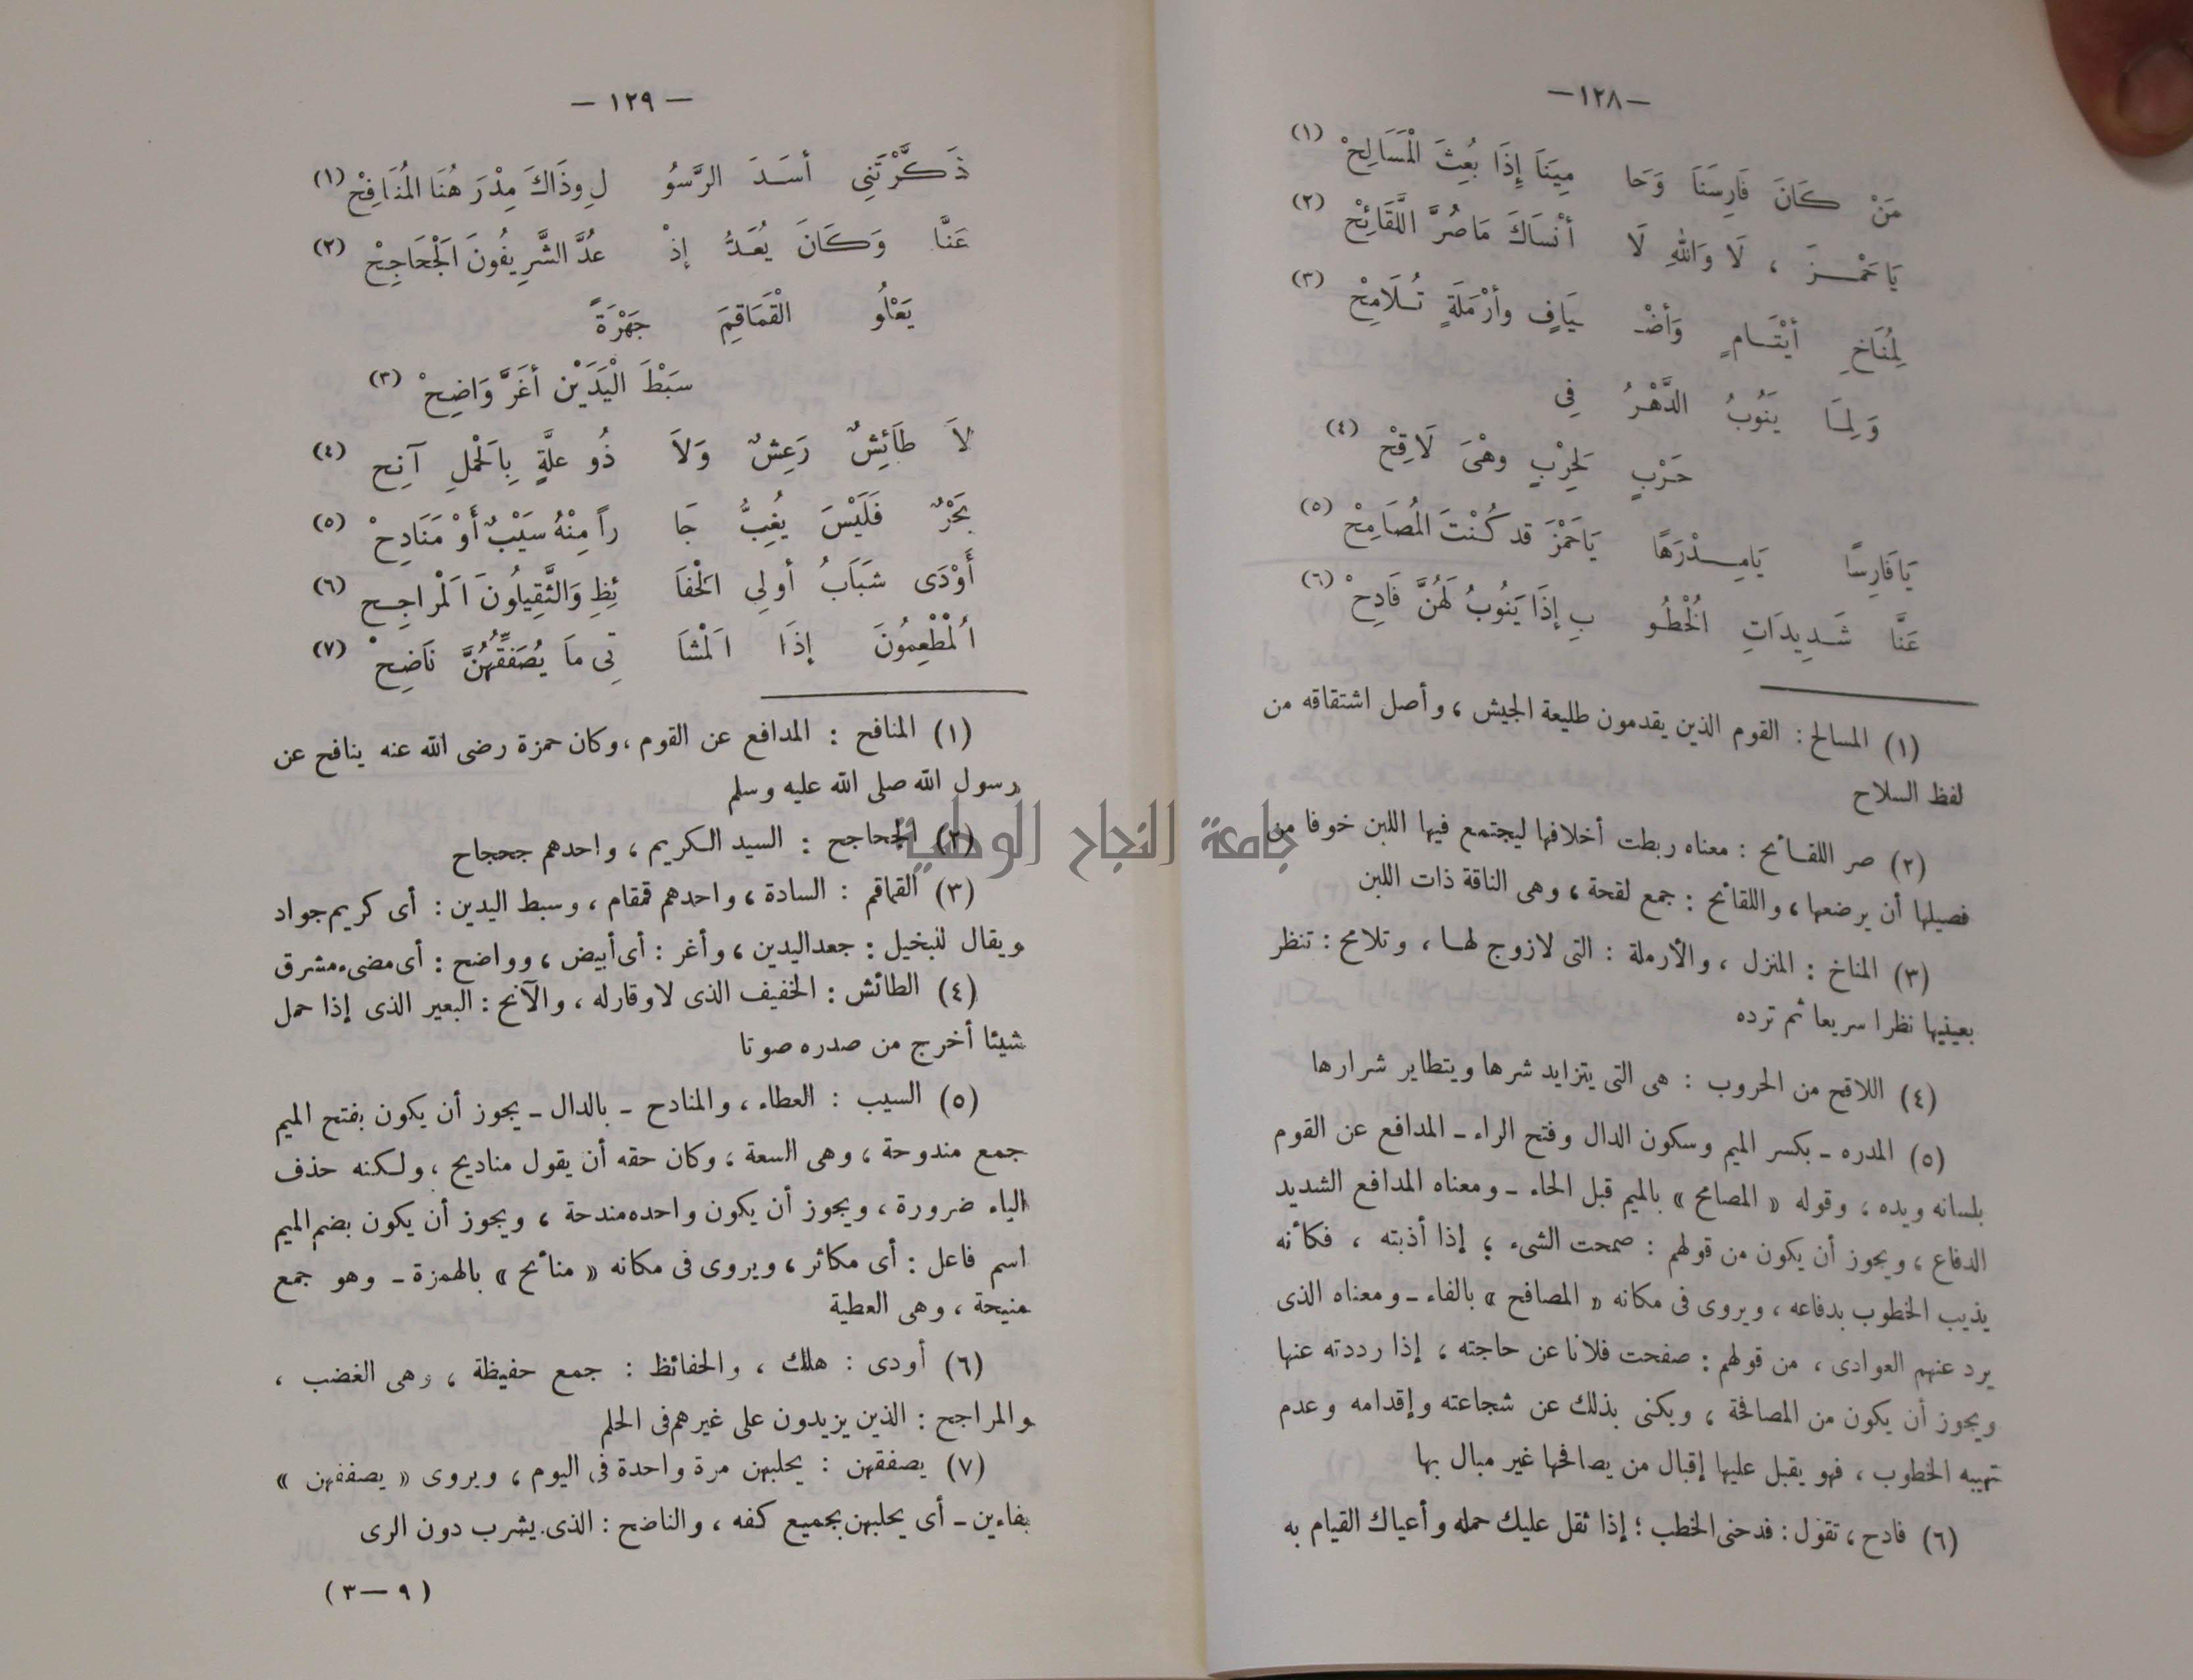 —١٢٨—
مَنْ كَانَ فَارِسَنَا وَحَا مِينَا إِذَا بُعِثَ الْمَسَالِحْ (١)
يَا حَمْـزَ ، لَا وَاللهِ لَا أنْسَاكَ مَا صُرَّ اللَّقَائِحْ (٢)
لِمُنَاخِ أيْتَـامٍ وَأضْـ ـيَافٍ وأرْمَلَةٍ تُـلَامِحْ (٣)
وَلِمَـا يَنُوبُ الدَّهْـرُ فِى
حَرْبٍ لِحِرْبٍ وهْىَ لَاقِحْ (٤)
يَا فَارِسًا يَامِـدْرَهًا يَاحَمْزَ قد كُنْتَ الْمُصَامِحْ (٥)
عَنَّا شَـدِيدَاتِ الْخُطُـو بِ إذَا يَنُوبُ لَهُنَّ فَادِحْ (٦)
(١) المسالح : القوم الذين يقدمون طليعة الجيش ، وأصل اشتقاقه من
لفظ السلاح
(٢) صر اللقـائح : معناه ربطت أخلافها ليجتمع فيها اللبن خوفا من
فصيلها أن يرضعها ، واللقائح : جمع لقحة ، وهى الناقة ذات اللبن
(٣) المناخ : المنزل ، والأرملة : التى لازوج لهـا ، وتلامح : تنظر
بعينيها نظرا سريعا ثم ترده
(٤) اللاقح من الحروب : هى التى يتزايد شرها ويتطاير شرارها
(٥) المدره ـ بكسر الميم وسكون الدال وفتح الراء ـ المدافع عن القوم
بلسانه ويده ، وقوله « المصامح » بالميم قبل الحاء ـ ومعناه المدافع الشديد
الدفاع ، ويجوز أن يكون من قولهم : صمحت الشىء ؛ إذا أذبته ، فكأنه
يذيب الخطوب بدفاعه ، ويروى فى مكانه « المصافح » بالفاء ـ ومعناه الذى
يرد عنهم العوادى ، من قولهم : صفحت فلانا عن حاجته ؛ إذا رددته عنها
ويجوز أن يكون من المصافحة ، ويكنى بذلك عن شجاعته وإقدامه وعدم
تهيبه الخطوب ، فهو يقبل عليها إقبال من يصافحها غير مبال بها
(٦) فادح ، تقول : فدحنى الخطب ؛ إذا ثقل عليك حمله وأعياك القيام به
— ١٢٩ —
ذَكَّرْتَنِى أسَـدَ الرَّسُو لِ وذَاكَ مِدْرَهُنَا المُنَافِحْ (١)
عَنَّا وَكَانَ يُعَـدُّ إذْ عُدَّ الشَّرِيفُونَ الْجَحَاجِحْ (٢)
يَعْلُو الْقَمَاقِمَ جَهْرَةً
سَبْطَ الْيَدَيْنِ أغَرَّ وَاضِحْ (٣)
لاَ طَائِشٌ رَعِشٌ وَلاَ ذُو علَّةٍ بِالْحْملِ آنِح (٤)
بَحْرٌ فَلَيْسَ يُغِبُّ جَا راً مِنْهُ سَيْبٌ أَوْ مَنَادِحْ (٥)
أَوْدَى شَبَابُ أولِى الْحَفَا ئِظِ وَالثَّقِيلُونَ الَمْراجِـح (٦)
الْمُطْعِمُونَ إذَا الَمْشَا تِى مَا يُصَفِّقُهُنَّ نَاضِحْ (٧)
(١) المنافح : المدافع عن القوم ، وكان حمزة رضى الله عنه ينافح عن
رسول الله صلى الله عليه وسلم
(٢) الجحاجح : السيد الكريم ، واحدهم جحجاح
(٣) القماقم : السادة ، واحدهم قمقام ، وسبط اليدين : أى كريم جواد
ويقال للبخيل : جعد اليدين ، وأغر : أى أبيض ، وواضح : أى مضىء مشرق
(٤) الطائش : الخفيف الذى لا وقار له ، والآنح : البعير الذى إذا حمل
شيئا أخرج من صدره صوتا
(٥) السيب : العطاء ، والمنادح ـ بالدال ـ يجوز أن يكون بفتح الميم
جمع مندوحة ، وهى السعة ، وكان حقه أن يقول مناديح ، ولكنه حذف
الياء ضرورة ، ويجوز أن يكون واحده مندحة ، ويجوز أن يكون بضم الميم
اسم فاعل : أى مكاثر ، ويروى فى مكانه « منائح » بالهمزة ـ وهو جمع
منيحة ، وهى العطية
(٦) أودى : هلك ، والحفائظ : جمع حفيظة ، وهى الغضب ،
والمراجح : الذين يزيدون على غيرهم فى الحلم
(٧) يصفقهن : يحلبهن مرة واحدة فى اليوم ، ويروى « يصففهن »
بفاءين ـ أى يحلبهن بجميع كفه ، والناضح : الذى يشرب دون الرى
(٩ — ٣)
جامعة النجاح الوطنية